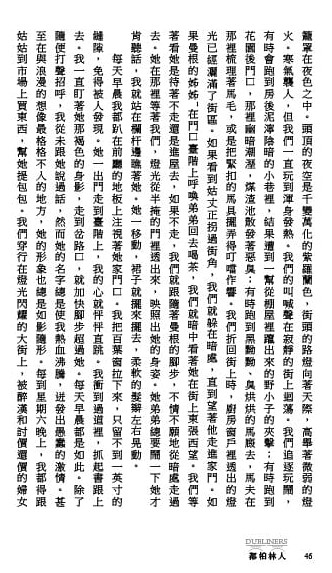 籠罩在夜色之中。頭頂的夜空是千變萬化的紫羅蘭色，街頭的路燈向著天際，高舉著微弱的燈
火。寒氣襲人，但我們一直玩到渾身發熱，我們的叫喊聲在寂靜的街上迴蕩，我們追逐玩鬧，
有時會跑到房後泥濘陰暗的小巷裡，結果遭到一幫從棚屋裡躥出來的野小子的夾擊；有時跑到
花園後門口，那裡幽暗潮溼，煤渣池散發著惡臭；有時跑到黑黝黝、臭烘烘的馬廄去，馬夫在
那裡梳理著馬毛，或是把緊扣的馬具擺弄得叮噹作響。我們折回街上時，廚房窗戶裡透出的燈
光已經灑滿了街區。如果看到姑丈正拐過街角，我們就躲在暗處，直到望著他走進家門。如
果曼根的姊姊在門口臺階上呼喚弟弟回去喝茶，我們就暗中看著她在街上東張西望。我們等
著看她是待著不走還是進屋去，如果不走，我們就跟隨著曼根的腳步，不情不願地從暗處走過
去。她在那裡等著我們，燈光從半掩的門裡透出來，映照出她的身姿。她弟弟總要鬧一下她才
肯聽話，我就站在欄杆邊瞧著她。她一移動，裙子就擺來擺去，柔軟的髮辮左右晃動。
每天早晨我都趴在前廳的地板上注視著她家門口。我把百葉窗拉下來，只留不到一英寸的
縫隙，免得被人發現。她一出門走到臺階上，我的心就怦怦直跳。我衝到過道裡，抓起書跟上
去。我一直盯著她那褐色的身影，走到岔路口，就加快腳步超過她。每天早晨都是如此。除了
隨便打聲招呼，我從未跟她說過話，然而她的名字總是使我熱血沸騰，迸發出愚蠢的激情。甚
至在與浪漫的想像最格格不入的地方，她的形象也總是如影隨形。每到星期六晚上，我都得跟
姑姑到市場上買東西，幫她提包包。我們穿行在燈光閃耀的大街上，被醉漢和討價還價的婦女
DUBLINERS
都柏林人
45